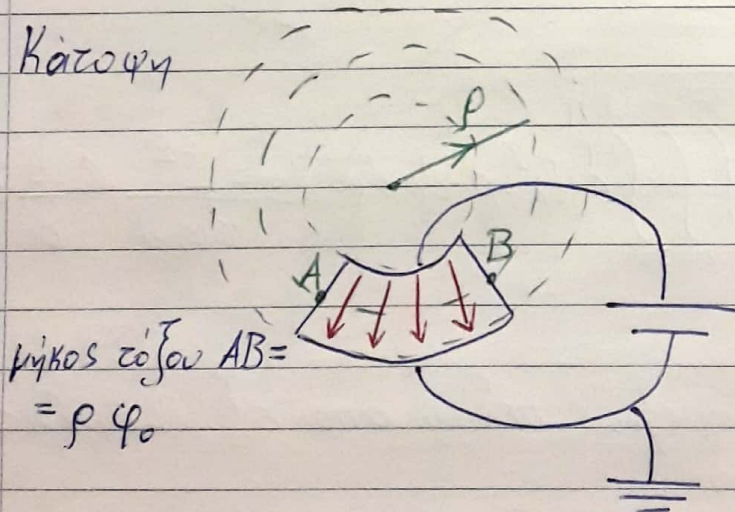 Κάτοψη
ρ
A
B
μήκος τόξου AB=
= ρ φ₀